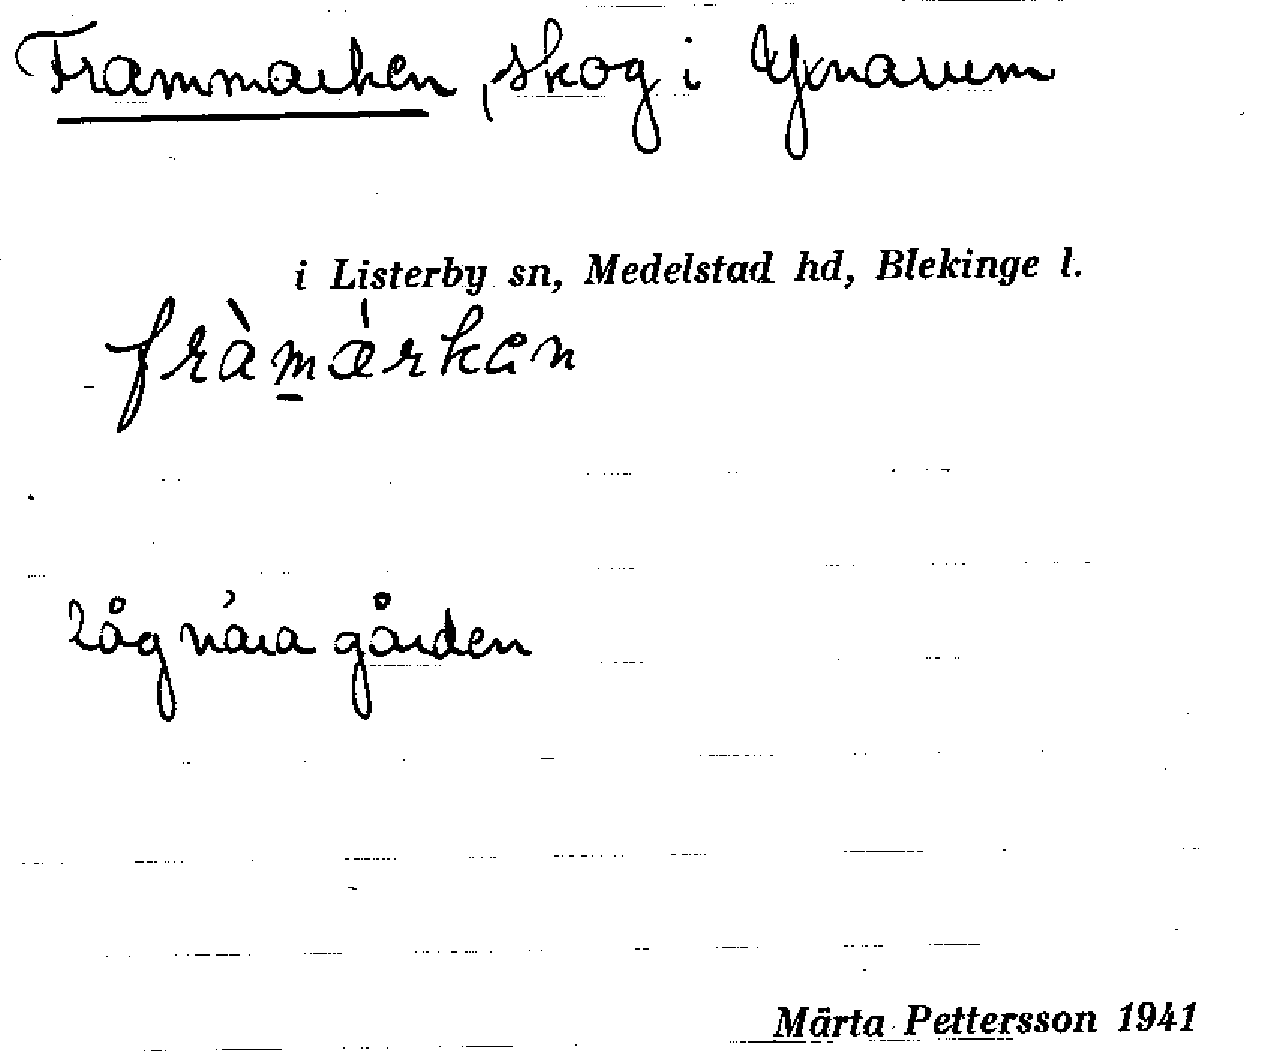 Frammarken, skog i Yxnarum
i Listerby sn, Medelstad hd, Blekinge l.
fràm̲árkån
Låg nära gården
Märta Pettersson 1941